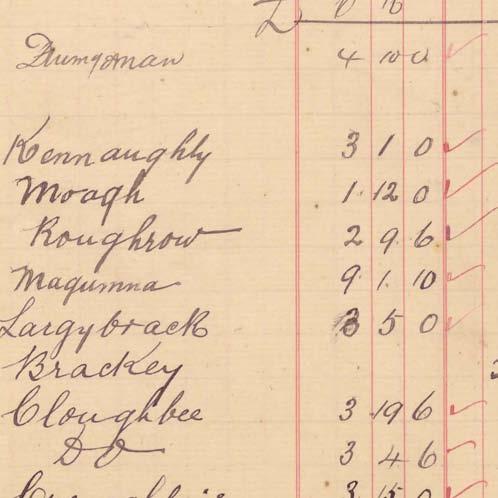 £
Drumgoman 4 10 0
Kennaughly 3 1 0
Moagh 1 12 0
Roughrow 2 9 6
Magumna 9 1 10
Largybrack 3 5 0
Brackey
Cloughbee 3 19 6
DO 3 4 6
3 15 0